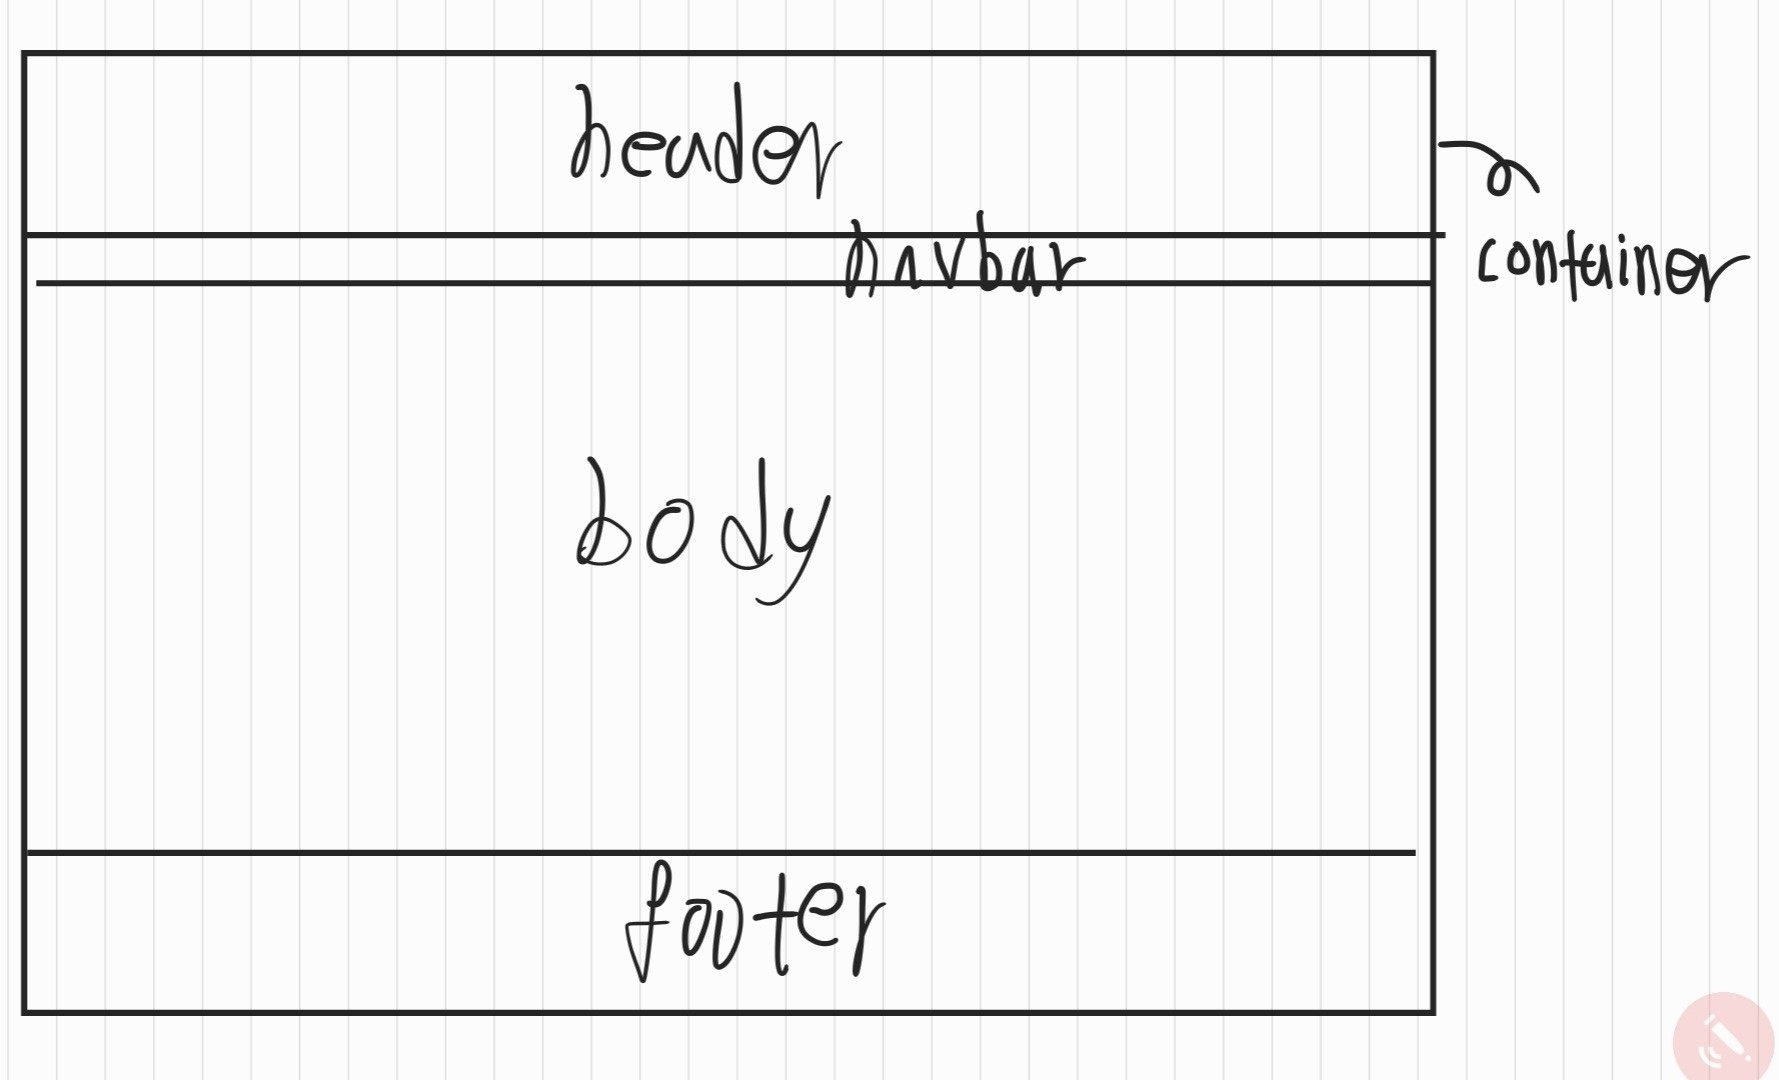 header
navbar
container
body
footer